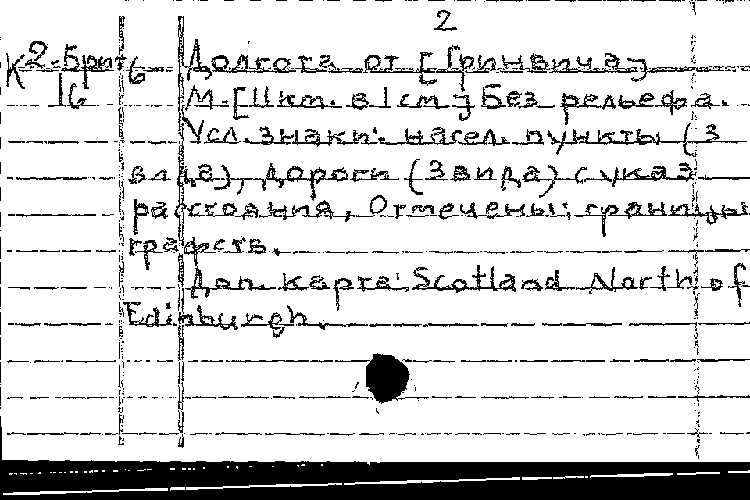 2
К 2-Брит 6
16
Долгота от [Гринвича]
М.[11км. в 1см] Без рельефа.
Усл. знаки: насел. пункты (3
вида), дороги (3 вида) с указ.
расстояния, Отмечены: границы
графств.
Доп. карта: Scotland North of
Edinburgh.